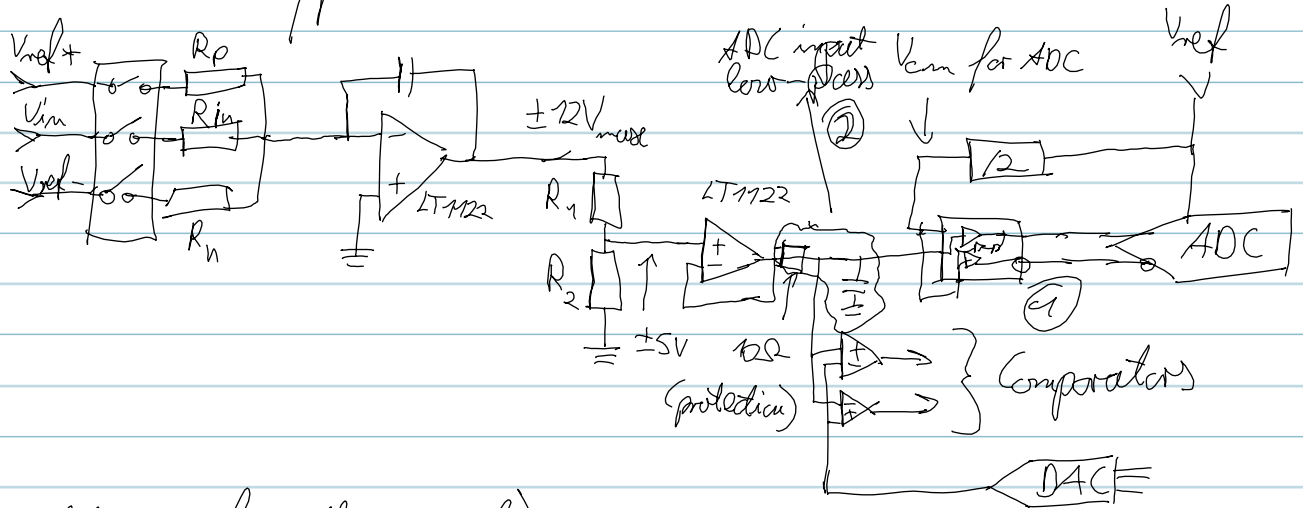 Vref+
Rp
Vin
Rin
Vref-
Rn
-
+
LT1122
±12V
R1
R2
±5V
LT1122
+
-
10Ω
(protection)
ADC input
low-pass
②
Vcm for ADC
/2
Vref
ADC
①
Comparators
DAC